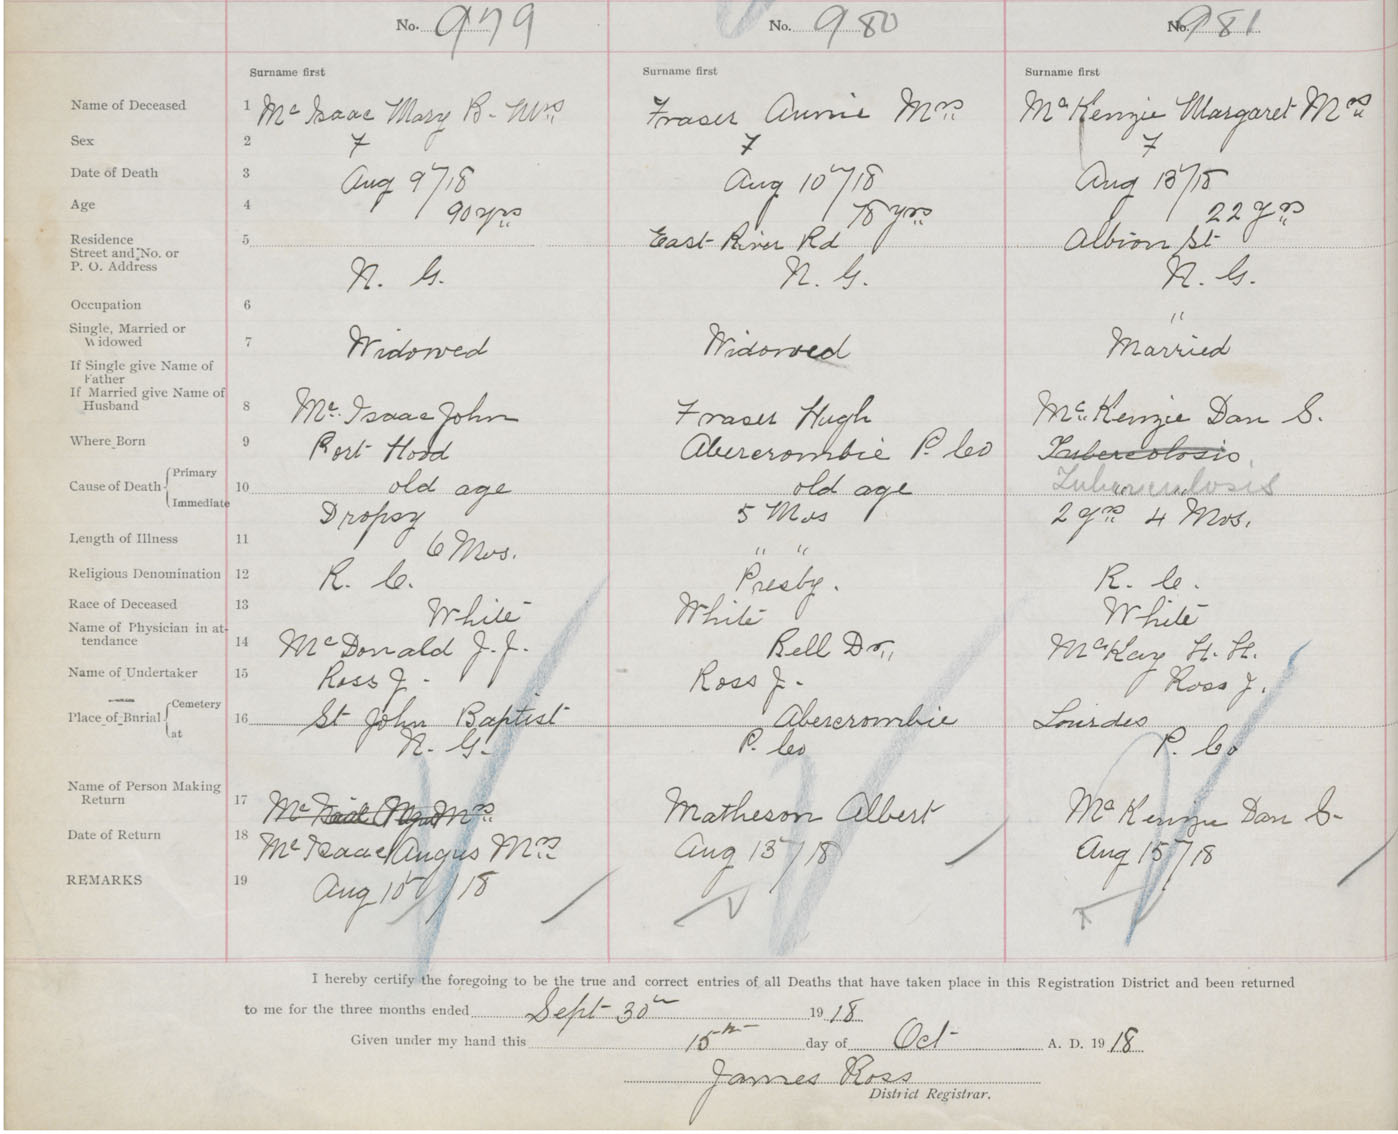 No. 979 No. 980 No. 981
Surname first Surname first Surname first
Name of Deceased 1 Mc Isaac Mary B. Mrs Fraser Annie Mrs McKenzie Margaret Mrs
Sex 2 F F F
Date of Death 3 Aug 9"/18 Aug 10"/18 Aug 13"/18
Age 4 90 yrs 78 yrs 22 yrs
Residence 5 East River Rd Albion St
Street and No. or
P. O. Address N. G. N. G. N. G.
Occupation 6 "
Single, Married or
Widowed 7 Widowed Widowed Married
If Single give Name of
Father
If Married give Name of
Husband 8 Mc. Isaac John Fraser Hugh McKenzie Dan S.
Where Born 9 Port Hood Abercrombie P. Co Tubercolosis
Cause of Death Primary 10 old age old age Tuberculosis
Immediate Dropsy 5 Mos 2 yrs 4 Mos.
Length of Illness 11 6 Mos. " "
Religious Denomination 12 R. C. Presby. R. C.
Race of Deceased 13 White White White
Name of Physician in at-
tendance 14 McDonald J. J. Bell Dr. McKay H. H.
Name of Undertaker 15 Ross J. Ross J. Ross J.
Place of Burial Cemetery 16 St John Baptist Abercrombie Lourdes
at N. G. P. Co P. Co
Name of Person Making
Return 17 Mc Mrs Matheson Albert McKenzie Dan S.
Date of Return 18 McIsaac Angus Mrs Aug 13"/18 Aug 15"/18
REMARKS 19 Aug 10"/18
I hereby certify the foregoing to be the true and correct entries of all Deaths that have taken place in this Registration District and been returned
to me for the three months ended Sept 30th 1918
Given under my hand this 15th day of Oct A. D. 1918
James Ross
District Registrar.